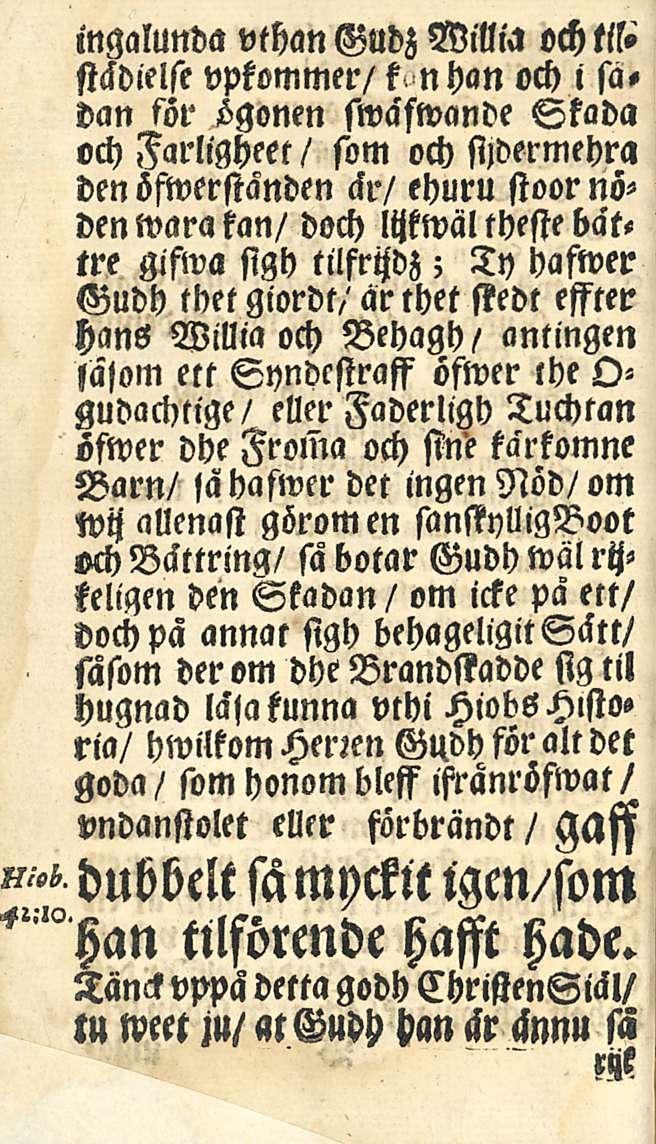 ingalunda vthan Gudz Willia och til-
städielse vpkommer/ kan han och i så-
dan för ögonen swäfwande Skada
och Farligheet / som och sijdermehra
den öfwerstånden är/ ehuru stoor nö-
den wara kan/ doch lijkwäl theste bät-
tre gifwa sigh tilfrijdz ; Ty hafwer
Gudh thet giordt/ är thet skedt effter
hans Willia och Behagh / antingen
såsom ett Syndestraff öfwer the O-
gudachtige / eller Faderligh Tuchtan
öfwer dhe From̃a och sine kärkomne
Barn/ så hafwer det ingen Nöd/ om
wij allenast görom en sanskyllig Boot
och Bättring/ så botar Gudh wäl rij-
keligen den Skadan / om icke på ett/
doch på annat sigh behageligit Sätt/
såsom der om dhe Brandskadde sig til
hugnad läsa kunna vthi Hiobs Histo-
ria/ hwilkom Herren Gudh för alt det
goda / som honom bleff ifrånröfwat /
vndanstolet eller förbrändt / gaff
Hiob. dubbelt så myckit igen/som
42:10. han tilförende hafft hade.
Tänck vppå detta godh Christen Siäl/
tu weet ju/ at Gudh han är ännu så
rijk